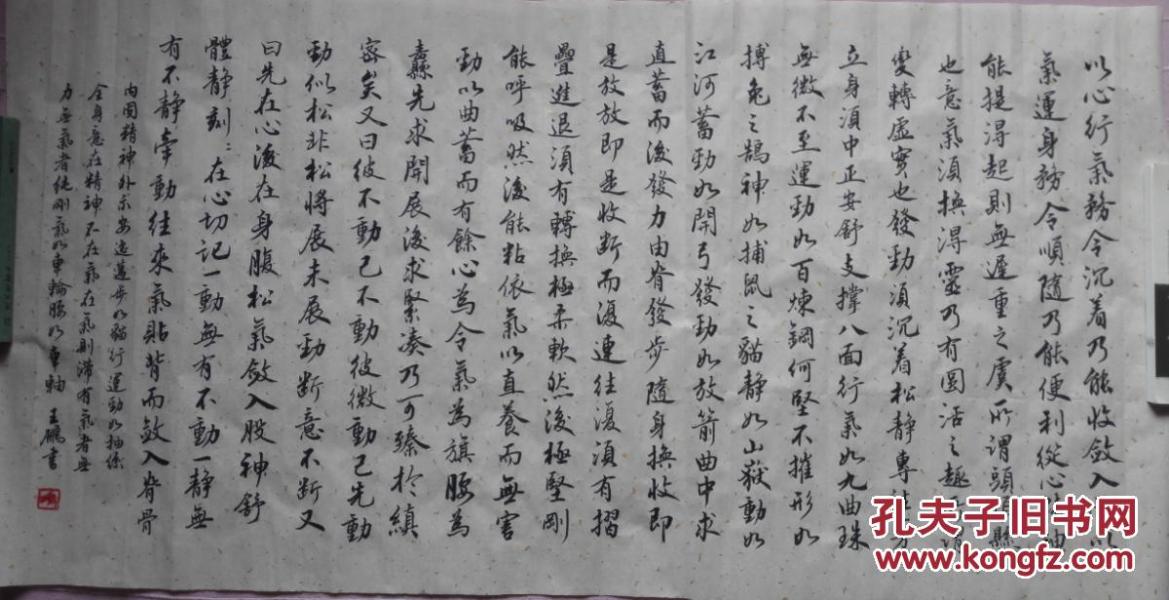 以心行氣務令沉着乃能收斂入
氣運身務令順隨乃能便利從心
能提得起則無遲重之虞所謂頭
也意氣須換得靈乃有圓活之趣
變轉虛實也發勁須沉着松靜專
立身須中正安舒支撐八面行氣如九曲珠
無微不至運勁如百煉鋼何堅不摧形如
搏兔之鵠神如捕鼠之貓靜如山嶽動如
江河蓄勁如開弓發勁如放箭曲中求
直蓄而後發力由脊發步隨身換收即
是放放即是收斷而復連往復須有摺
疊進退須有轉換極柔軟然後極堅剛
能呼吸然後能粘依氣以直養而無害
勁以曲蓄而有餘心為令氣為旗腰為
纛先求開展後求緊湊乃可臻於縝
密矣又曰彼不動己不動彼微動己先動
勁似松非松將展未展勁斷意不斷又
曰先在心後在身腹松氣斂入股神舒
體靜刻:在心切記一動無有不動一靜無
有不靜牽動往來氣貼背而斂入脊骨
內固精神外示安逸邁步如貓行運勁如抽絲
全身意在精神不在氣在氣則滯有氣者無
力無氣者純剛氣如車輪腰如車軸 王鵬書
孔夫子旧书网
www.kongfz.com